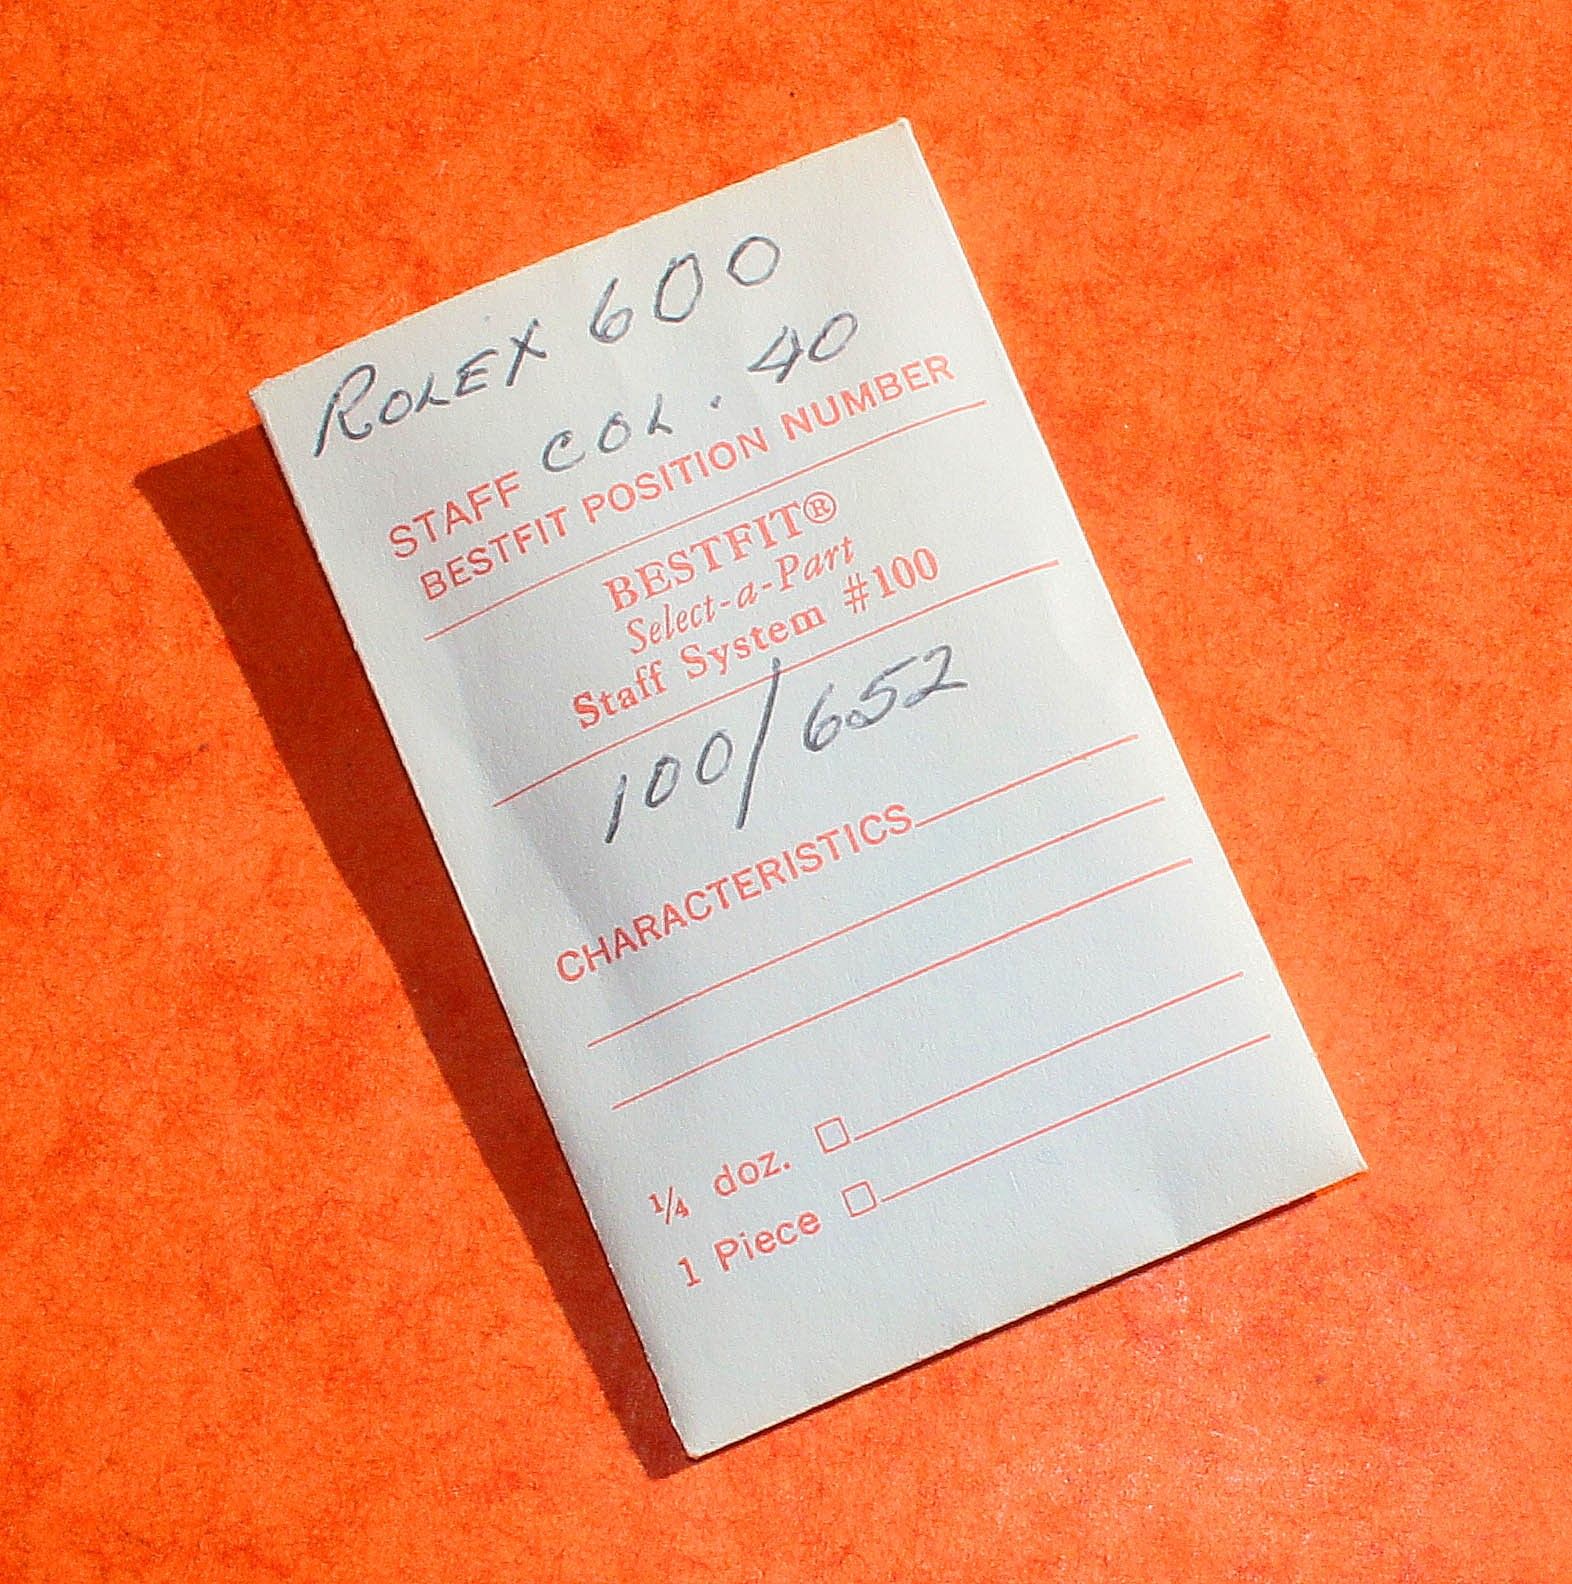 ROLEX 600
STAFF COL. 40
BESTFIT POSITION NUMBER
BESTFIT®
Select-a-Part
Staff System #100
100/652
CHARACTERISTICS
1/4 doz. □
1 Piece □